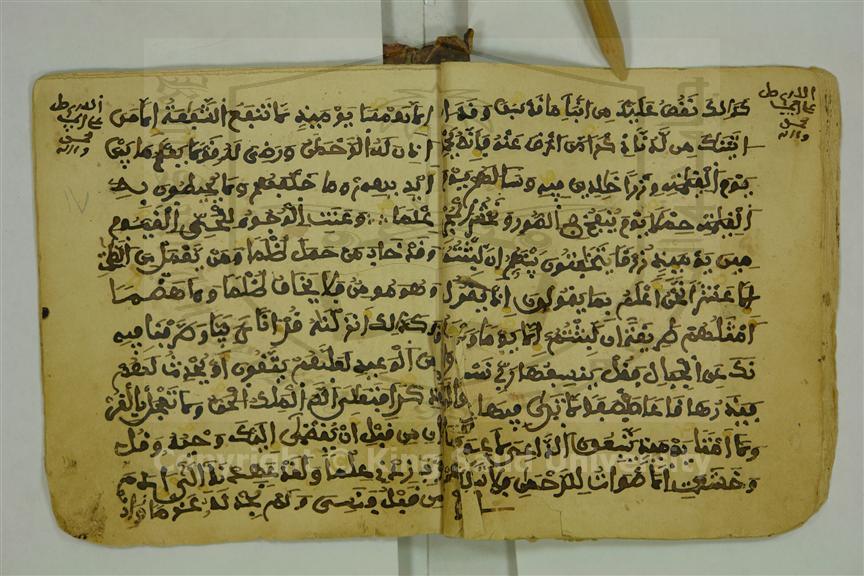 كذالك نقص عليك من انباء ما قد سبق وقد ا
اتينك من لدنا ذكرا من اعرض عنه فانه يحمل
يوم القيمة وزرا خالدين فيه وساء لهم يوم
القيمة حملا يوم ينفخ في الصور ونحشر المجر
مين يومئذ زرقا يتخفتون بينهم ان لبثتم
الا عشرا نحن اعلم بما يقولون اذ يقول
امثلهم طريقة ان لبثتم الا يوما ويسئلو
نك عن الجبال فقل ينسفها ربي نسفا
فيذرها قاعا صفصفا لا ترى فيها
ولا امتا يومئذ يتبعون الداعي لا عوج
وخشعت الاصوات للرحمن فلا
الا همسا يومئذ لا تنفع الشفعة الا من
اذن له الرحمن ورضي له قولا يعلم ما بين
ايديهم وما خلفهم ولا يحيطون به
علما وعنت الوجوه للحي القيوم
وقد خاب من حمل ظلما ومن يعمل من الصلحت
وهو مومن فلا يخاف ظلما ولا هضما
وكذالك انزلنه قرانا عربيا وصرفنا فيه
من الوعيد لعلهم يتقون او يحدث لهم
ذكرا فتعلى الله الملك الحق ولا تعجل بالقر
ان من قبل ان يقضى اليك وحيه وقل
رب زدني علما ولقد عهدنا الى ادم
من قبل فنسي ولم نجد له عزما واذ
Copyright © King Saud University